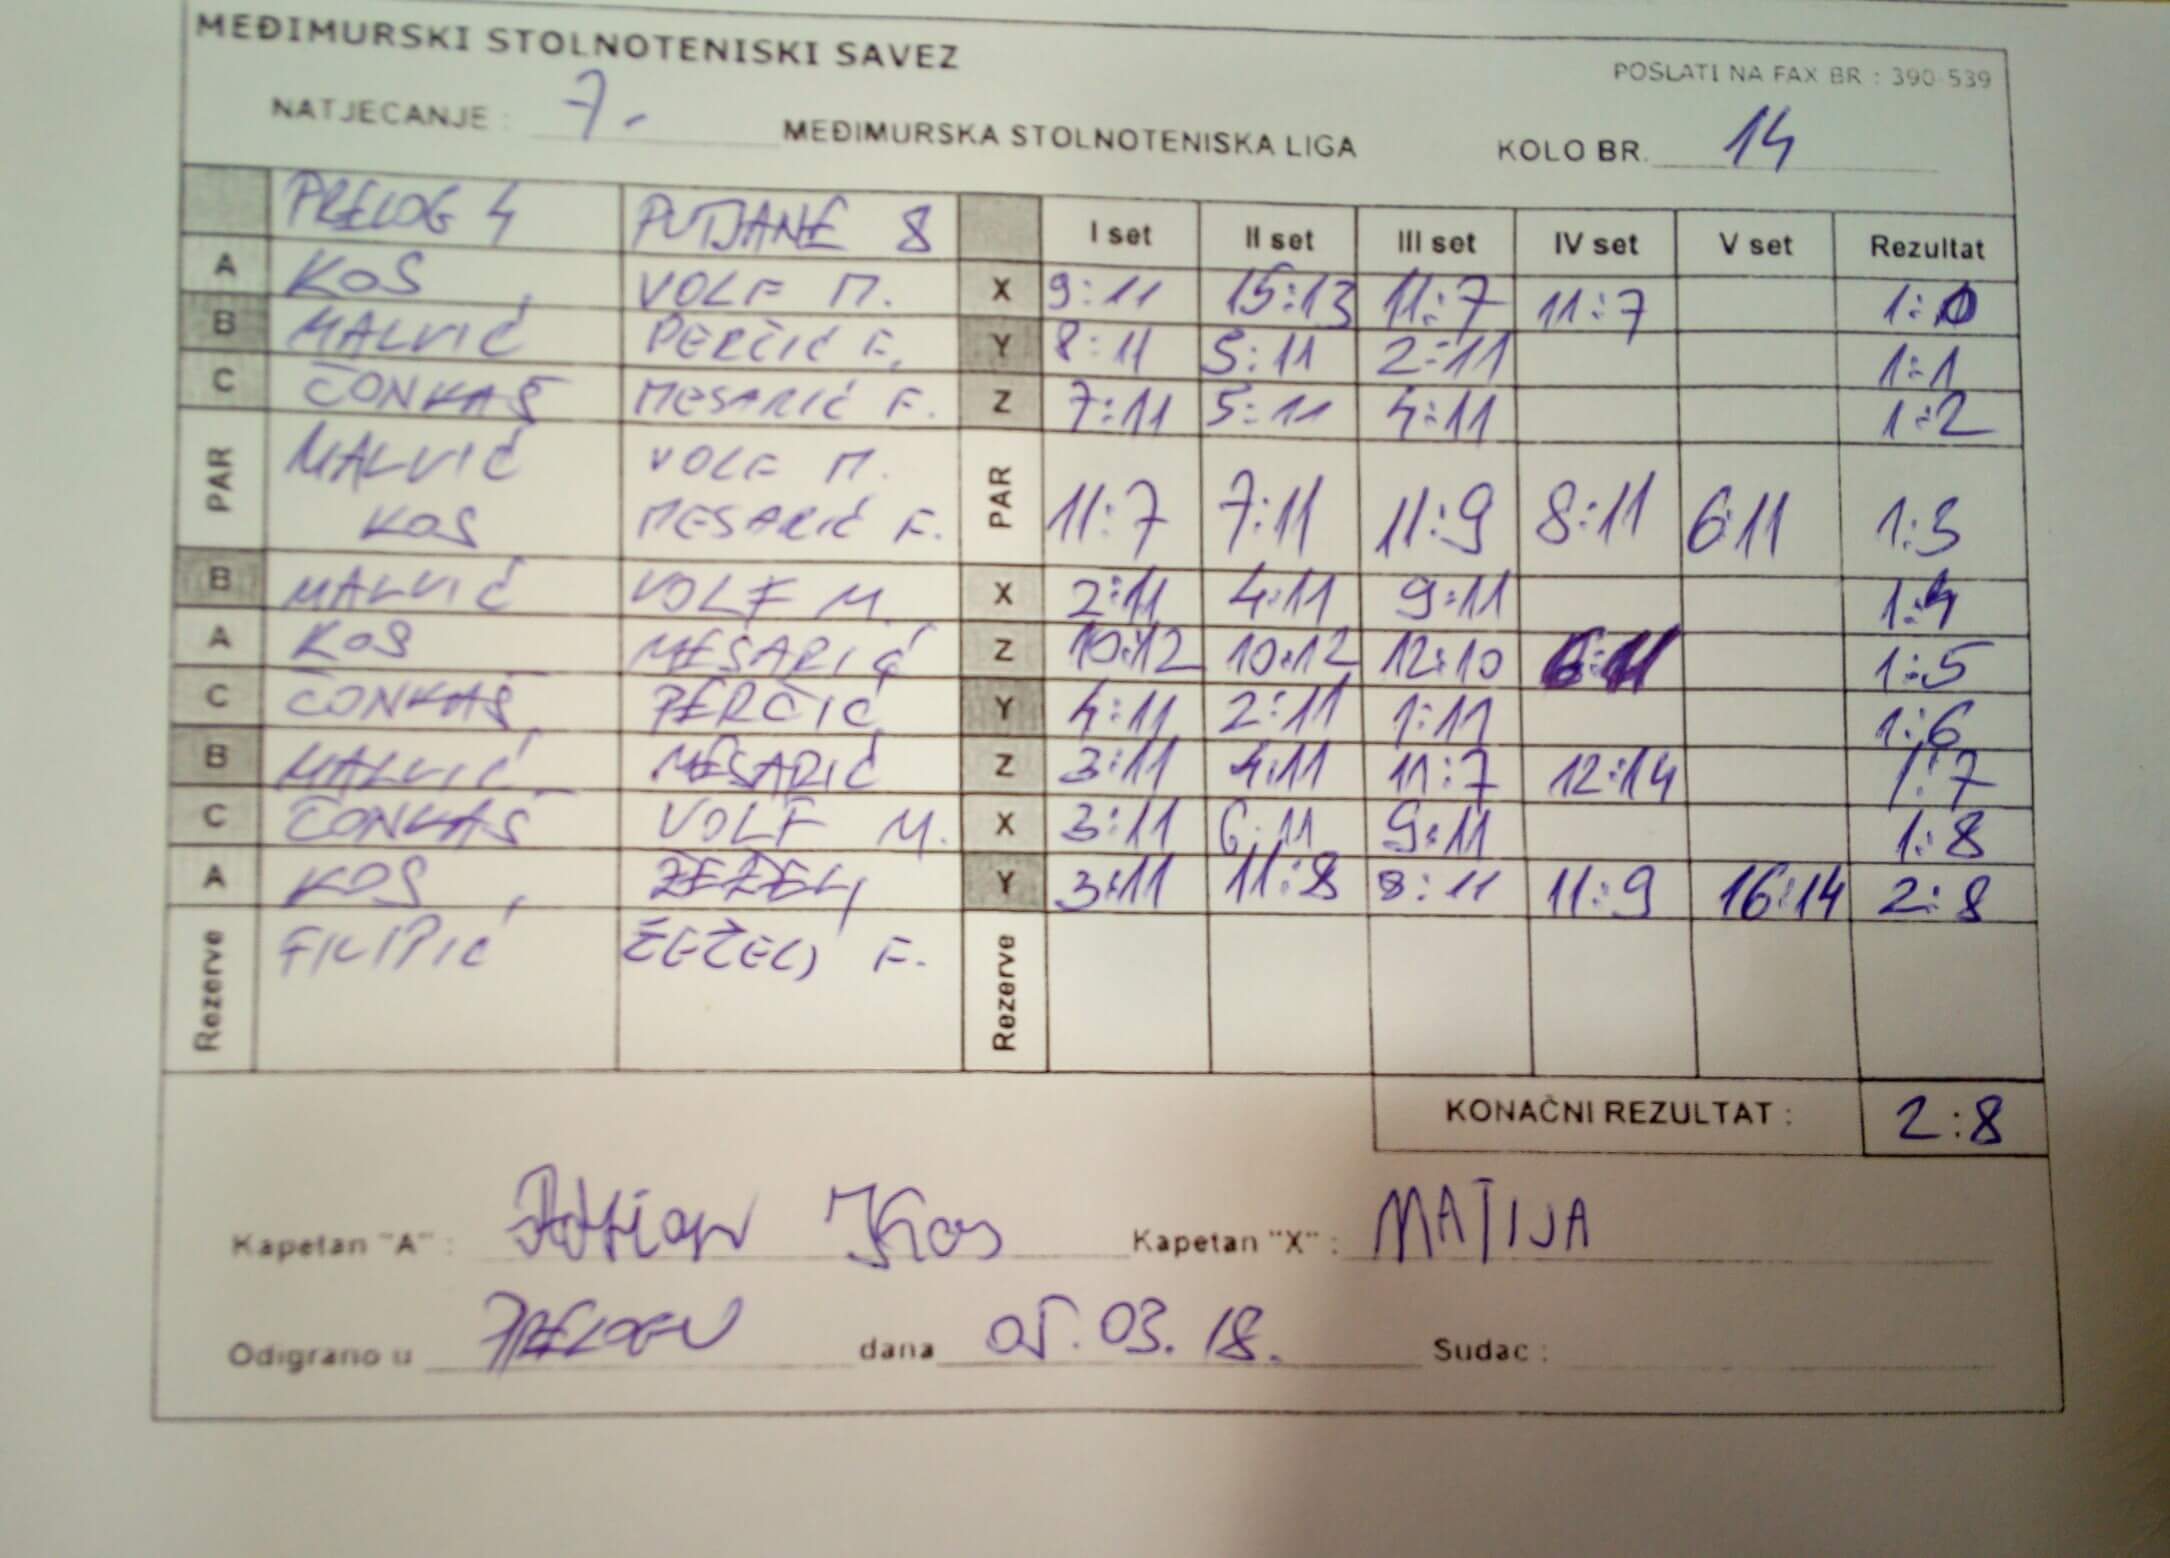 MEĐIMURSKI STOLNOTENISKI SAVEZ
POSLATI NA FAX BR : 390-539
NATJECANJE : 7. MEĐIMURSKA STOLNOTENISKA LIGA KOLO BR. 14
PRELOG 4 PUTJANE 8 I set II set III set IV set V set Rezultat
A KOS VOLF M. X 9:11 15:13 11:7 11:7 1:0
B MALVIĆ PERČIĆ F. Y 8:11 5:11 2:11 1:1
C ČONKAŠ MESARIĆ F. Z 7:11 5:11 4:11 1:2
PAR MALVIĆ VOLF M. PAR 11:7 7:11 11:9 8:11 6:11 1:3
KOS MESARIĆ F.
B MALVIĆ VOLF M. X 2:11 4:11 9:11 1:4
A KOS MESARIĆ Z 10:12 10:12 12:10 6:11 1:5
C ČONKAŠ PERČIĆ Y 4:11 2:11 1:11 1:6
B MALVIĆ MESARIĆ Z 3:11 4:11 11:7 12:14 1:7
C ČONKAŠ VOLF M. X 3:11 6:11 9:11 1:8
A KOS ŽEŽELJ Y 3:11 11:8 8:11 11:9 16:14 2:8
Rezerve FILIPIĆ ŽEŽELJ F. Rezerve
KONAČNI REZULTAT : 2:8
Kapetan "A" : Kos Kapetan "X" : MATIJA
Odigrano u PRELOGU dana 05.03.18. Sudac :